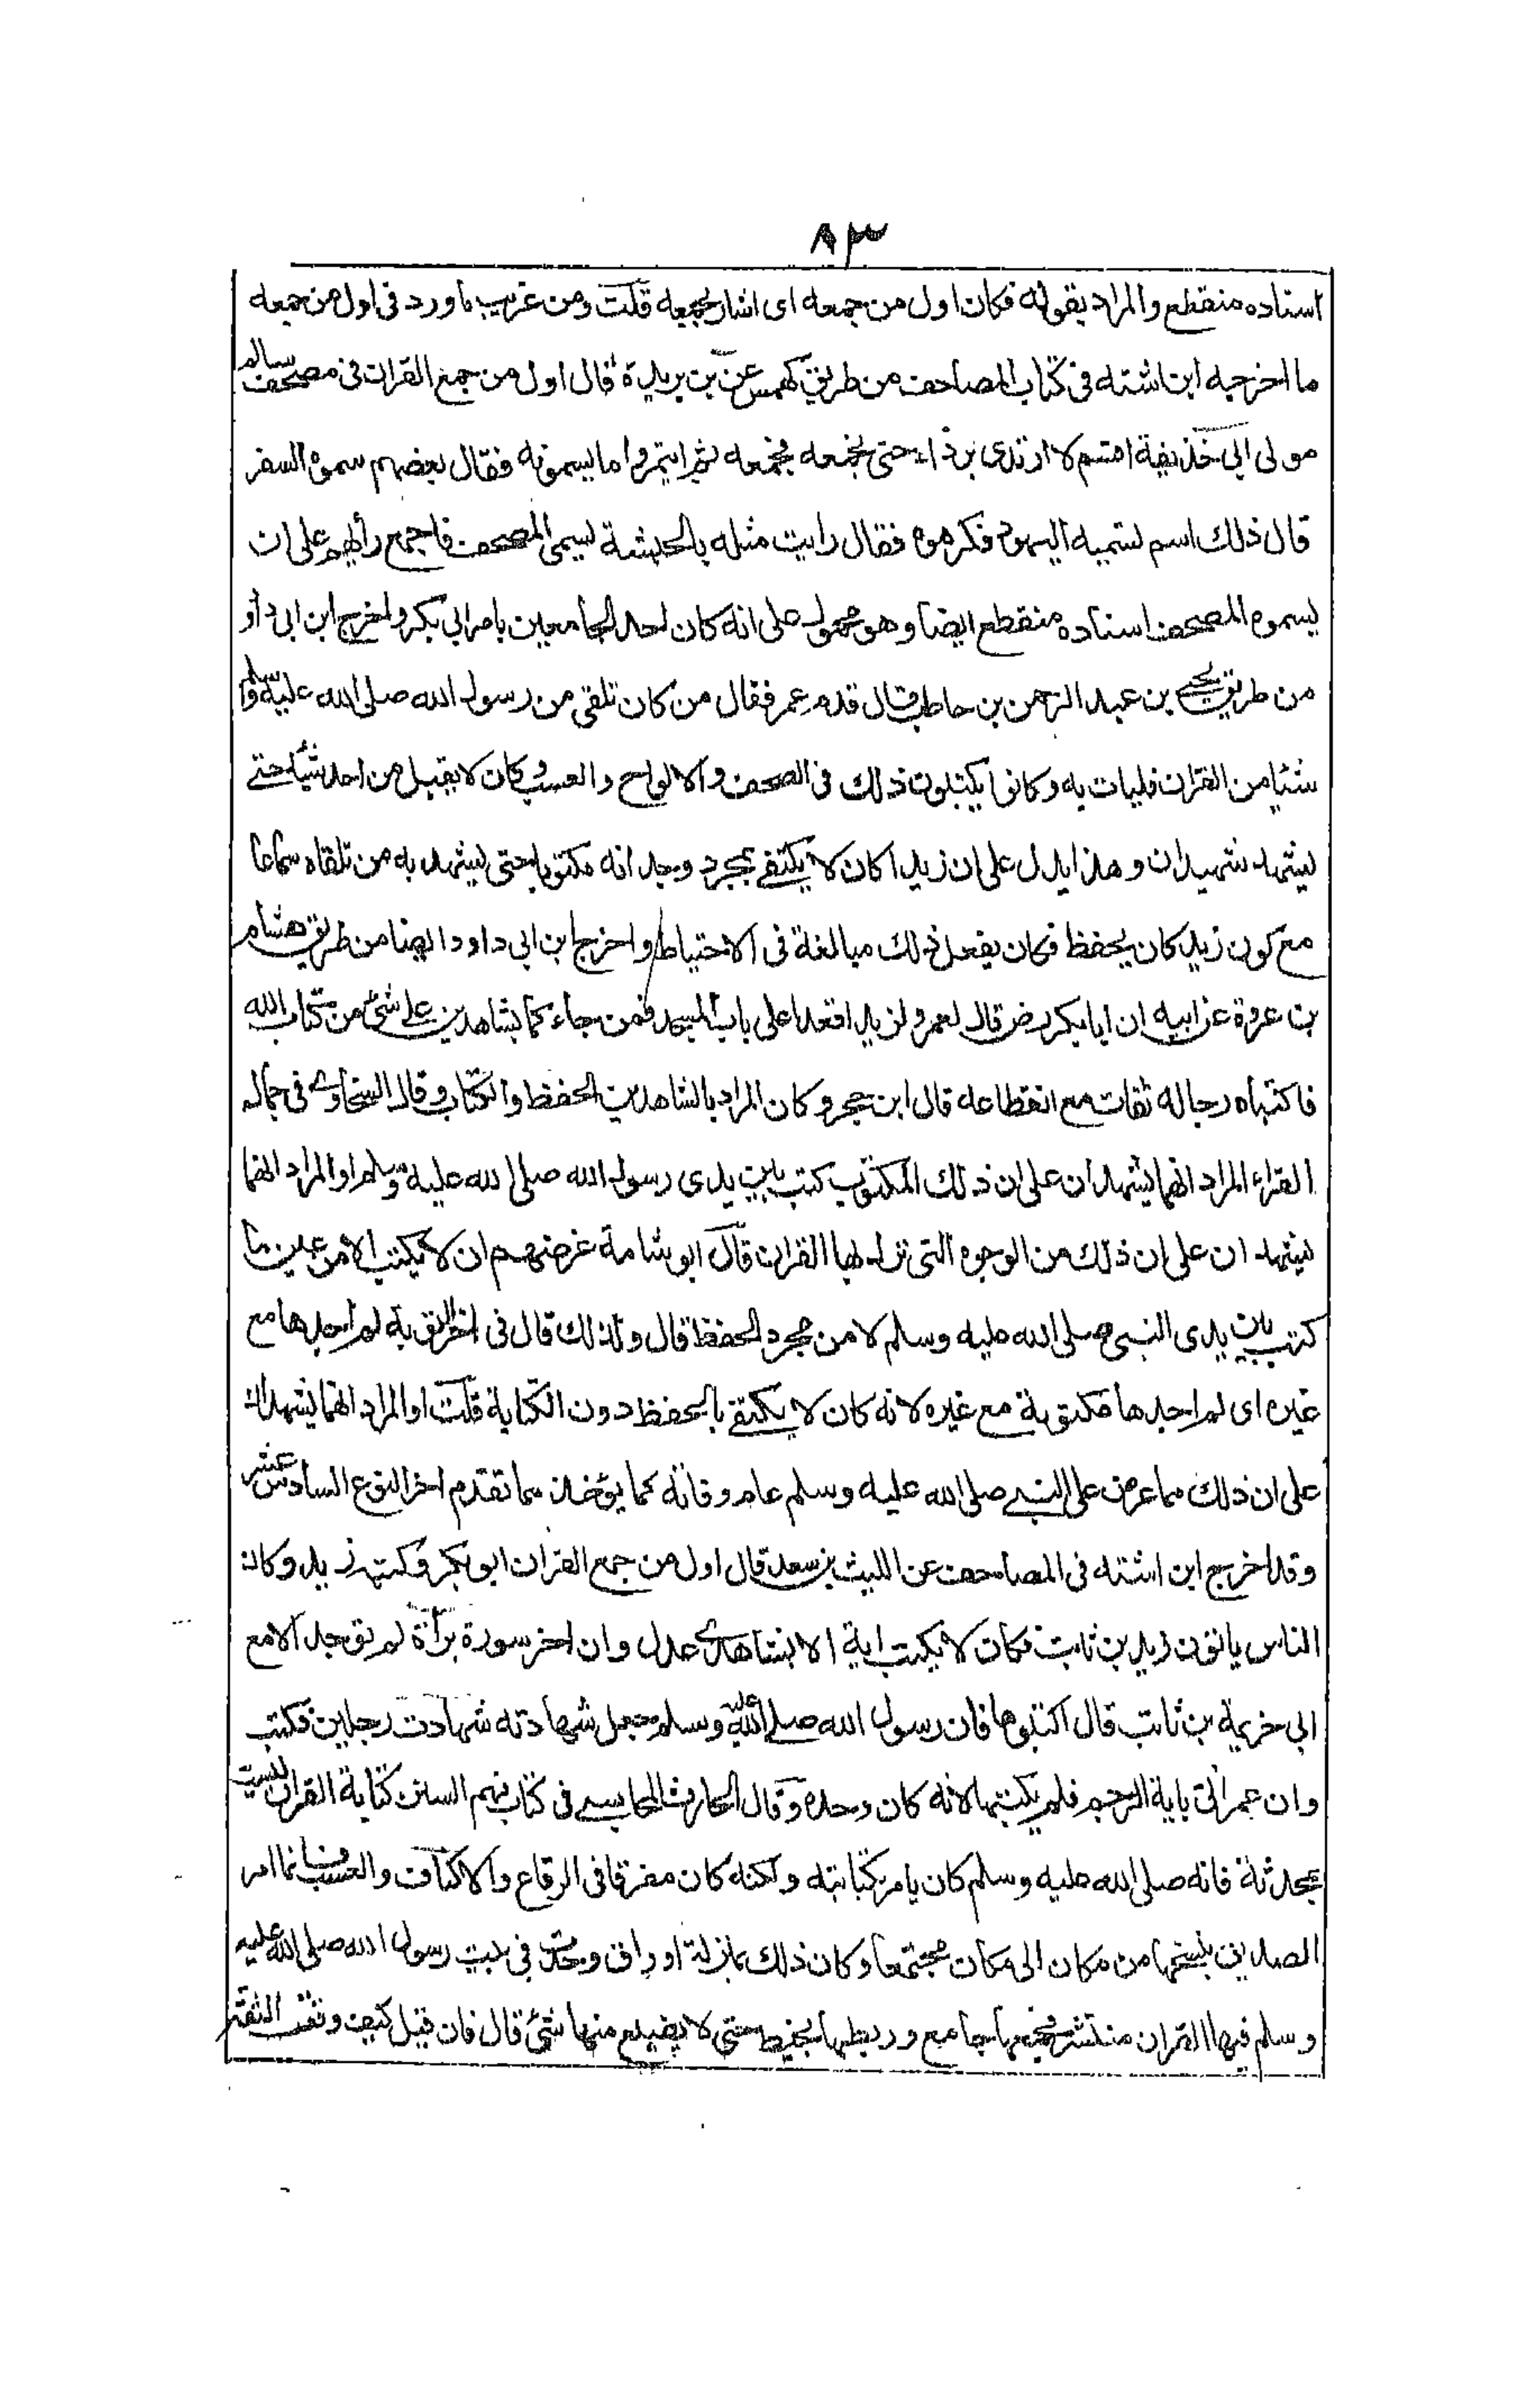 ٨٣
اسناده منقطع والمراد بقوله فكان اول من جمعه اى اشار بجمعه قلت ومن غريب ما ورد فى اول من جمعه
ما اخرجه ابن اشته فى كتاب المصاحف من طريق كهمس عن بن بريدة قال اول من جمع القران فى مصحف سالم
مولى ابى حذيفة اقسم لا ارتدى برداء حتى يجمعه فجمعه ثم ايتمروا ما يسمونه فقال بعضهم سموه السفر
قال ذلك اسم تسميه اليهود فكرهوه فقال رايت مثله بالحبشة يسمى المصحف فاجمع رأيهم على ان
يسموه المصحف اسناده منقطع ايضا وهو محمول على انه كان احد الجامعين بامر ابى بكر واخرج ابن ابى داو
من طريق يحيى بن عبد الرحمن بن حاطب قال قدم عمر فقال من كان تلقى من رسول الله صلى الله عليه وسلم
شيئا من القران فليات به وكانوا يكتبون ذلك فى الصحف والالواح والعسب وكان لا يقبل من احد شيئا حتى
يشهد شهيدان وهذا يدل على ان زيدا كان لا يكتفى بمجرد وجدانه مكتوبا حتى يشهد به من تلقاه سماعا
مع كون زيد كان يحفظ فكان يفعل ذلك مبالغة فى الاحتياط واخرج ابن ابى داود ايضا من طريق هشام
بن عروة عن ابيه ان ابا بكر رض قال لعمر ولزيد اقعدا على باب المسجد فمن جاء كما بشاهدين على شئ من كتاب الله
فاكتباه رجاله ثقات مع انقطاعه قال ابن حجر وكان المراد بالشاهدين الحفظ والكتاب وقال السخاوى فى جمال
القراء المراد انهما يشهدان على ان ذلك المكتوب كتب بين يدى رسول الله صلى الله عليه وسلم او المراد انهما
يشهد ان على ان ذلك من الوجوه التى نزل بها القران قال ابو شامة غرضهم ان لا يكتب الا من عين ما
كتب بين يدى النبى صلى الله عليه وسلم لا من مجرد الحفظ قال ولذلك قال فى اخر التوبة لم اجدها مع
غيره اى لم اجدها مكتوبة مع غيره لانه كان لا يكتفى بالحفظ دون الكتابة قلت او المراد انهما يشهدان
على ان ذلك مما عرض على النبى صلى الله عليه وسلم عام وفاته كما يؤخذ مما تقدم اخر النوع السادس عشر
وقد اخرج ابن اشته فى المصاحف عن الليث بن سعد قال اول من جمع القران ابو بكر وكتبه زيد وكان
الناس ياتون زيد بن ثابت فكان لا يكتب اية الا بشاهدى عدل وان اخر سورة برأة لم توجد الا مع
ابى خزيمة بن ثابت قال اكتبوها فان رسول الله صلى الله عليه وسلم جعل شهادته شهادت رجلين فكتب
وان عمر اتى باية الرجم فلم يكتبها لانه كان وحده وقال الحارث المحاسبى فى كتاب فهم السنن كتابة القران ليست
بمحدثة فانه صلى الله عليه وسلم كان يامر بكتابته ولكنه كان مفرقا فى الرقاع والاكتاف والعسب فانما امر
الصديق بنسخها من مكان الى مكان مجتمعا وكان ذلك بمنزلة اوراق وجدت فى بيت رسول الله صلى الله عليه
وسلم فيها القران منتشر فجمعها جامع وربطها بخيط حتى لا يضيع منها شئ قال فان قيل كيف وقعت الثقة